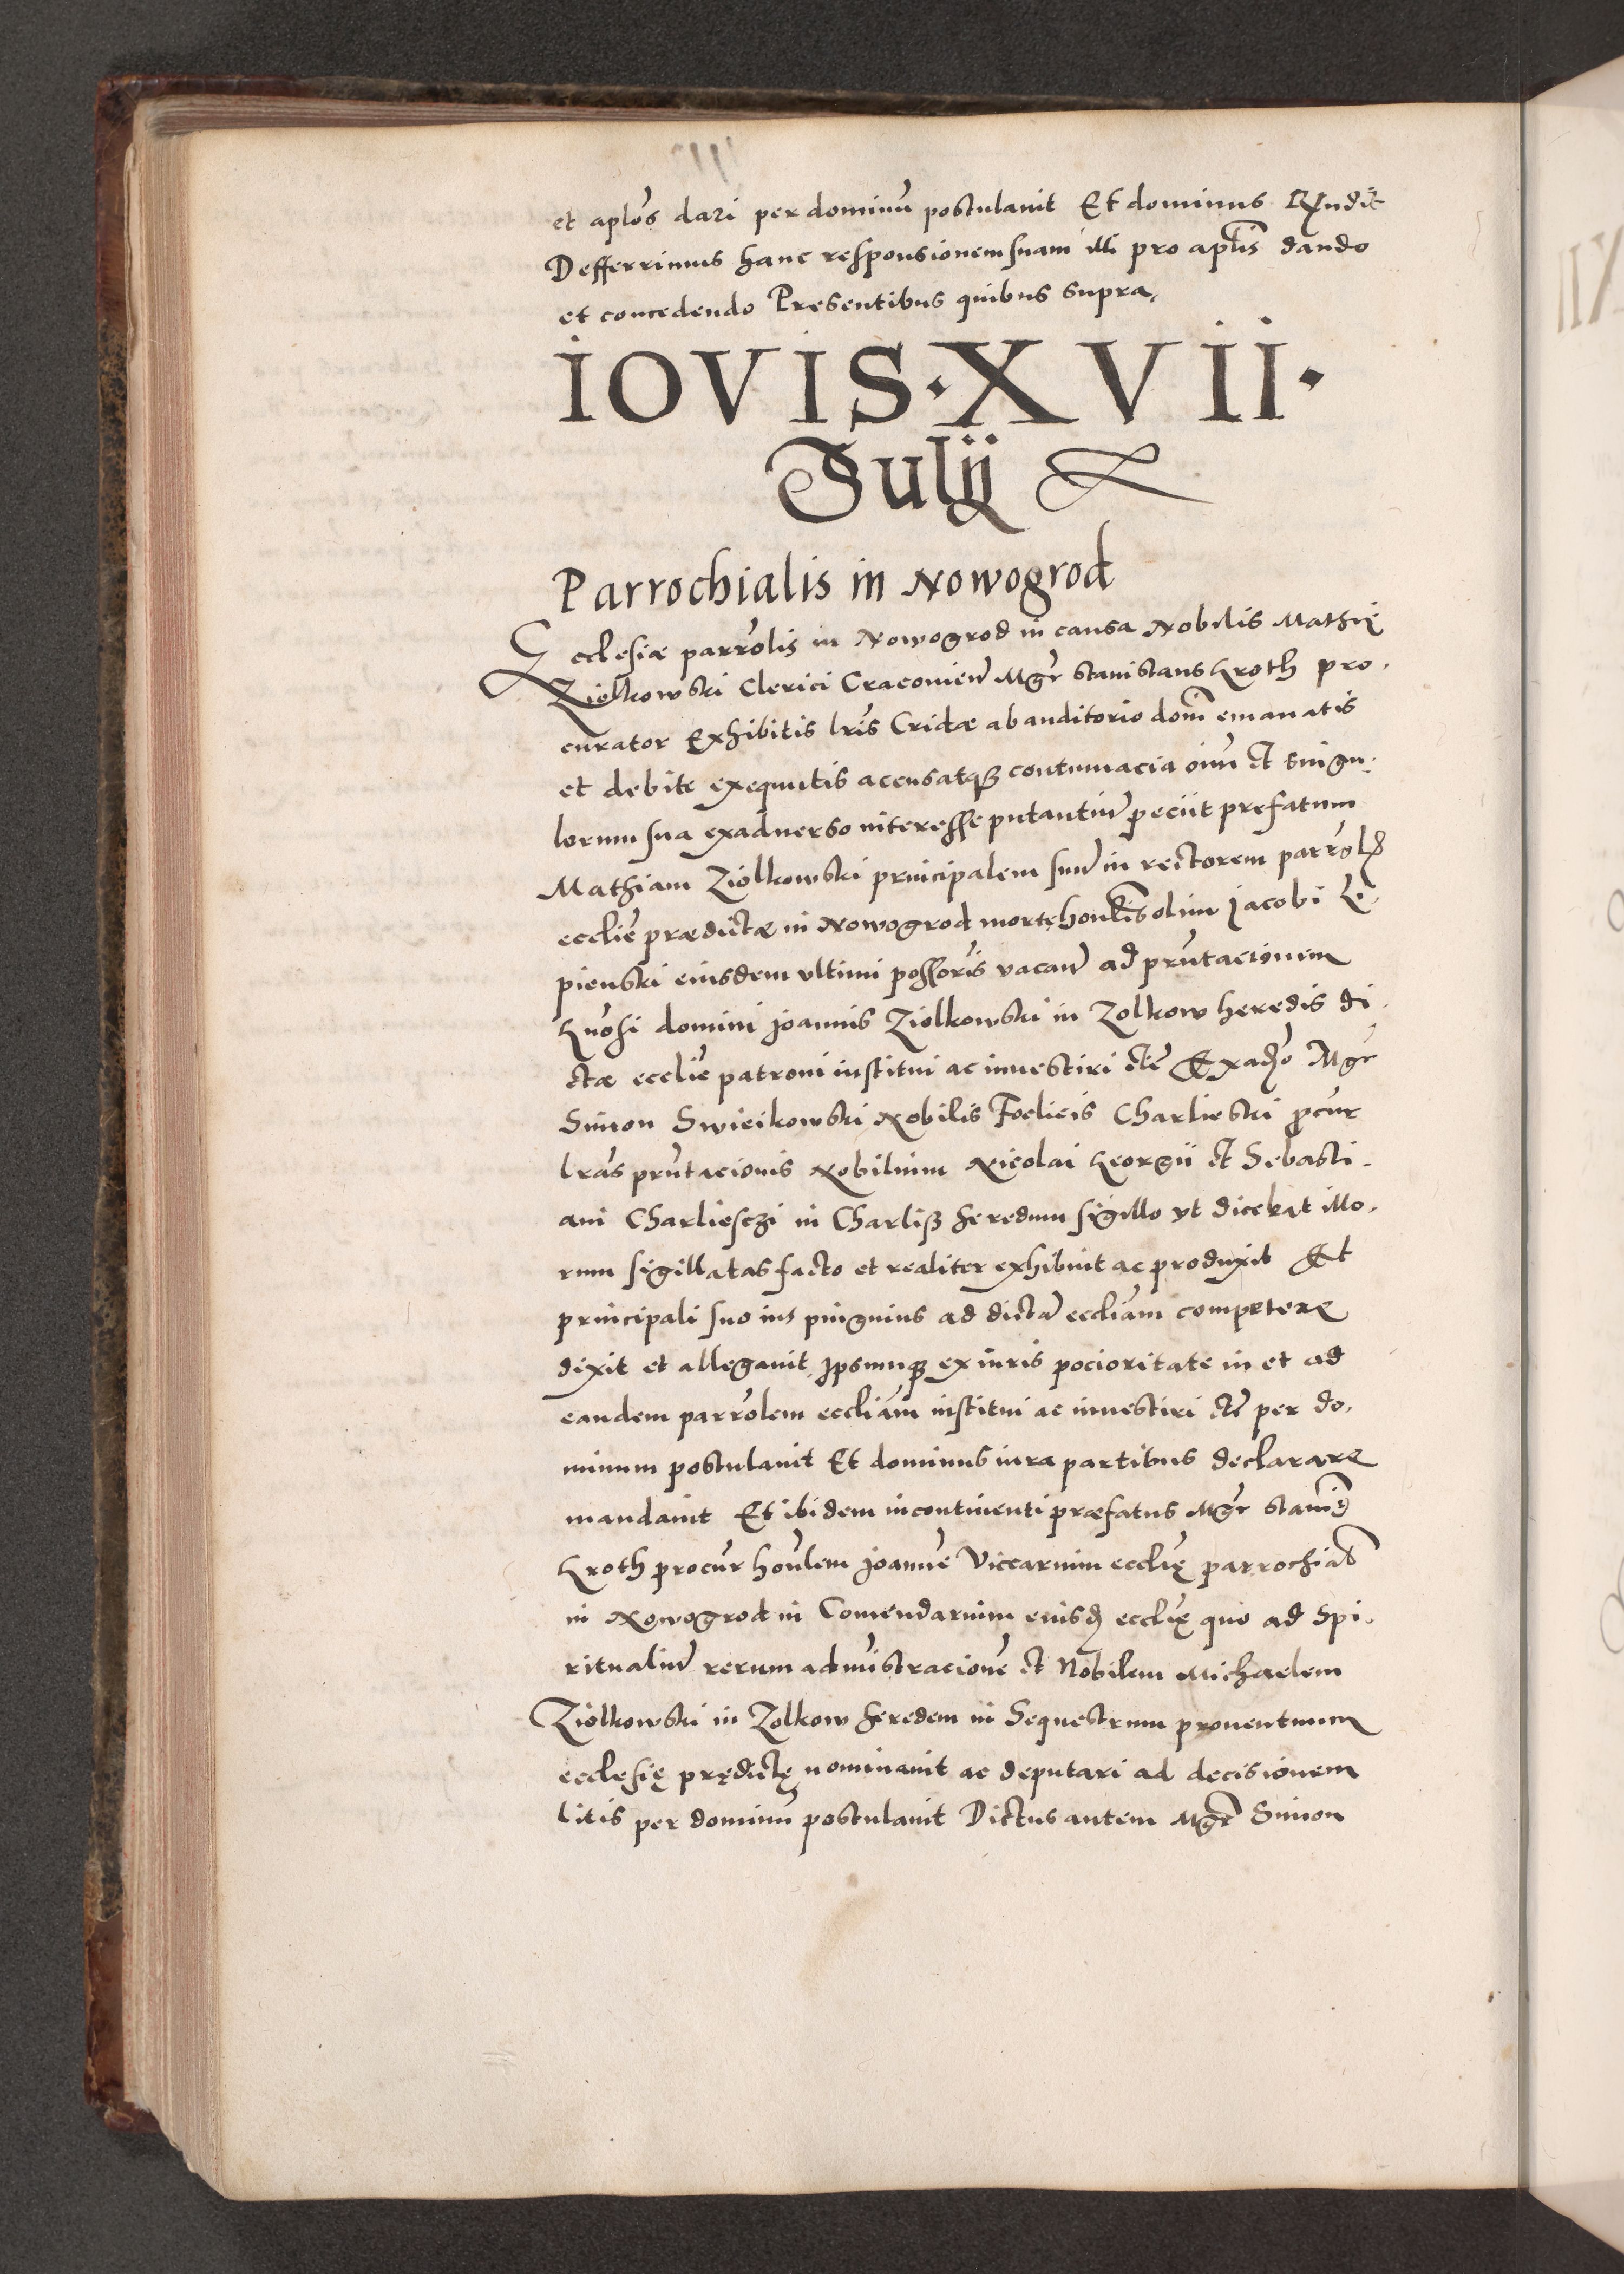 et aplos dari per dominū postulauit Et dominus Rndit
Defferrimus hanc responsionem suam illi pro aplis dando
et concedendo Presentibus quibus supra,
IOVIS·XVII·
Julij
Parrochialis in Nowogrod
Ecclesiæ parrolis in Nowogrod in causa Nobilis Mathię
Ziolkowski Clerici Cracovien Mgr Stanislaus Groth pro-
curator Exhibitis lris Cridæ ab auditorio domi emanatis
et debite exequutis accusatqȝ contumacia oim et singu-
lorum sua exaduerso interesse putantiu peciit prefatum
Mathiam Ziolkowski principalem suū in rectorem parrolis
ecclie prædictæ in Nowogrod morte honlis olim Jacobi Li-
pienski eiusdem vltimi possoris vacan ad prntacionem
Gnosi domini Joannis Ziolkowski in Zolkow heredis di-
ctæ ecclie patroni institui ac inuestiri etc Exaduo Mgr
Simon Swieikowski Nobilis Foelicis Charlieski procur
lras prntacionis Nobilium Nicolai Georgii et Sebasti-
ani Charliesczi in Charliß heredum sigillo vt dicebat illo-
rum sigillatas facto et realiter exhibuit ac produxit Et
principali suo ius pinguius ad dictā eccliam competere
dixit et allegauit Ipsumqȝ ex iuris pocioritate in et ad
eandem parrolem eccliam institui ac inuestiri etc per do-
minum postulauit Et dominus iura partibus declarare
mandauit Et ibidem incontinenti præfatus Mgr Stanis
Groth procur honlem Joannē Viccarium ecclię parrochial
in Nowogrod in Comendarium eiusd ecclię quo ad Spi-
ritualiū rerum admistracionē et Nobilem Michaelem
Ziolkowski in Zolkow heredem in Sequestrum prouentuum
ecclesię prędictę nominauit ac deputari ad decisionem
litis per dominū postulauit Dictus autem Mgr Simon